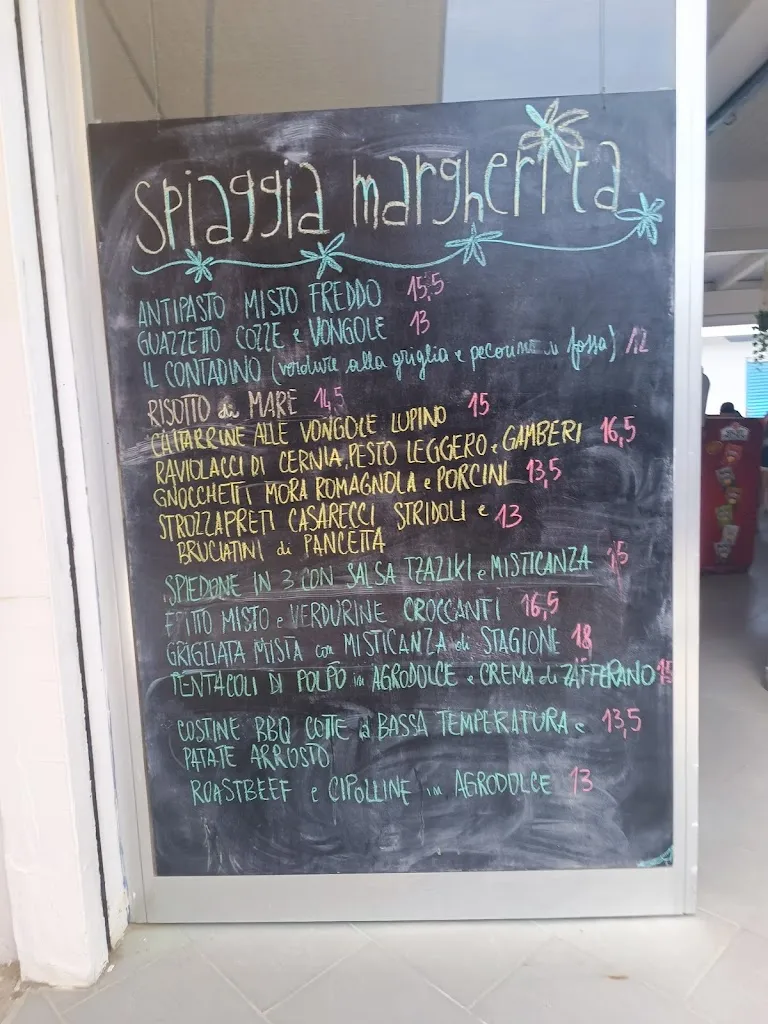 Spiaggia margherita
ANTIPASTO MISTO FREDDO 15,5
GUAZZETTO COZZE e VONGOLE 13
IL CONTADINO (verdure alla griglia e pecorino di fossa) 12
RISOTTO di MARE 14,5
CHITARRINE ALLE VONGOLE LUPINO 15
RAVIOLACCI DI CERNIA, PESTO LEGGERO e GAMBERI 16,5
GNOCCHETTI MORA ROMAGNOLA e PORCINI 13,5
STROZZAPRETI CASARECCI STRIDOLI e 13
BRUCIATINI di PANCETTA
SPIEDONE IN 3 CON SALSA TZAZIKI e MISTICANZA 15
FRITTO MISTO e VERDURINE CROCCANTI 16,5
GRIGLIATA MISTA con MISTICANZA di STAGIONE 18
TENTACOLI DI POLPO in AGRODOLCE e CREMA di ZAFFERANO 15
COSTINE BBQ COTTE a BASSA TEMPERATURA e 13,5
PATATE ARROSTO
ROASTBEEF e CIPOLLINE in AGRODOLCE 13